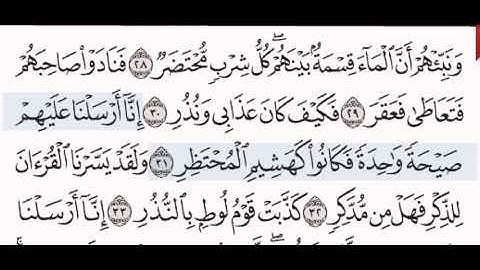 وَنَبِّئْهُمْ أَنَّ ٱلْمَآءَ قِسْمَةٌۢ بَيْنَهُمْ ۖ كُلُّ شِرْبٍ مُّحْتَضَرٌ ٢٨ فَنَادَوْا۟ صَاحِبَهُمْ
فَتَعَاطَىٰ فَعَقَرَ ٢٩ فَكَيْفَ كَانَ عَذَابِى وَنُذُرِ ٣٠ إِنَّآ أَرْسَلْنَا عَلَيْهِمْ
صَيْحَةً وَٰحِدَةً فَكَانُوا۟ كَهَشِيمِ ٱلْمُحْتَظِرِ ٣١ وَلَقَدْ يَسَّرْنَا ٱلْقُرْءَانَ
لِلذِّكْرِ فَهَلْ مِن مُّدَّكِرٍ ٣٢ كَذَّبَتْ قَوْمُ لُوطٍۭ بِٱلنُّذُرِ ٣٣ إِنَّآ أَرْسَلْنَا